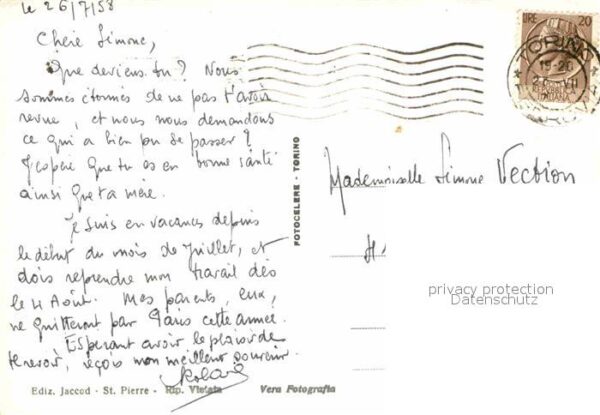 le 26/7/58
Chère Simone,
Que deviens-tu ? Nous
sommes étonnés de ne pas t'avoir
revue, et nous nous demandons
ce qui a bien pu se passer ?
J'espère que tu es en bonne santé
ainsi que ta mère.
Je suis en vacances depuis
le début du mois de Juillet, et
dois reprendre mon travail dès
le 4 Août. Mes parents, eux,
ne quitteront pas Paris cette année.
Espérant avoir le plaisir de
te revoir, reçois mon meilleur souvenir.
Ediz. Jaccod - St. Pierre - Rip. Vietata
Vera Fotografia
FOTOCELERE - TORINO
LIRE 20
TORINO
19-20
Mademoiselle Simone Vection
privacy protection
Datenschutz